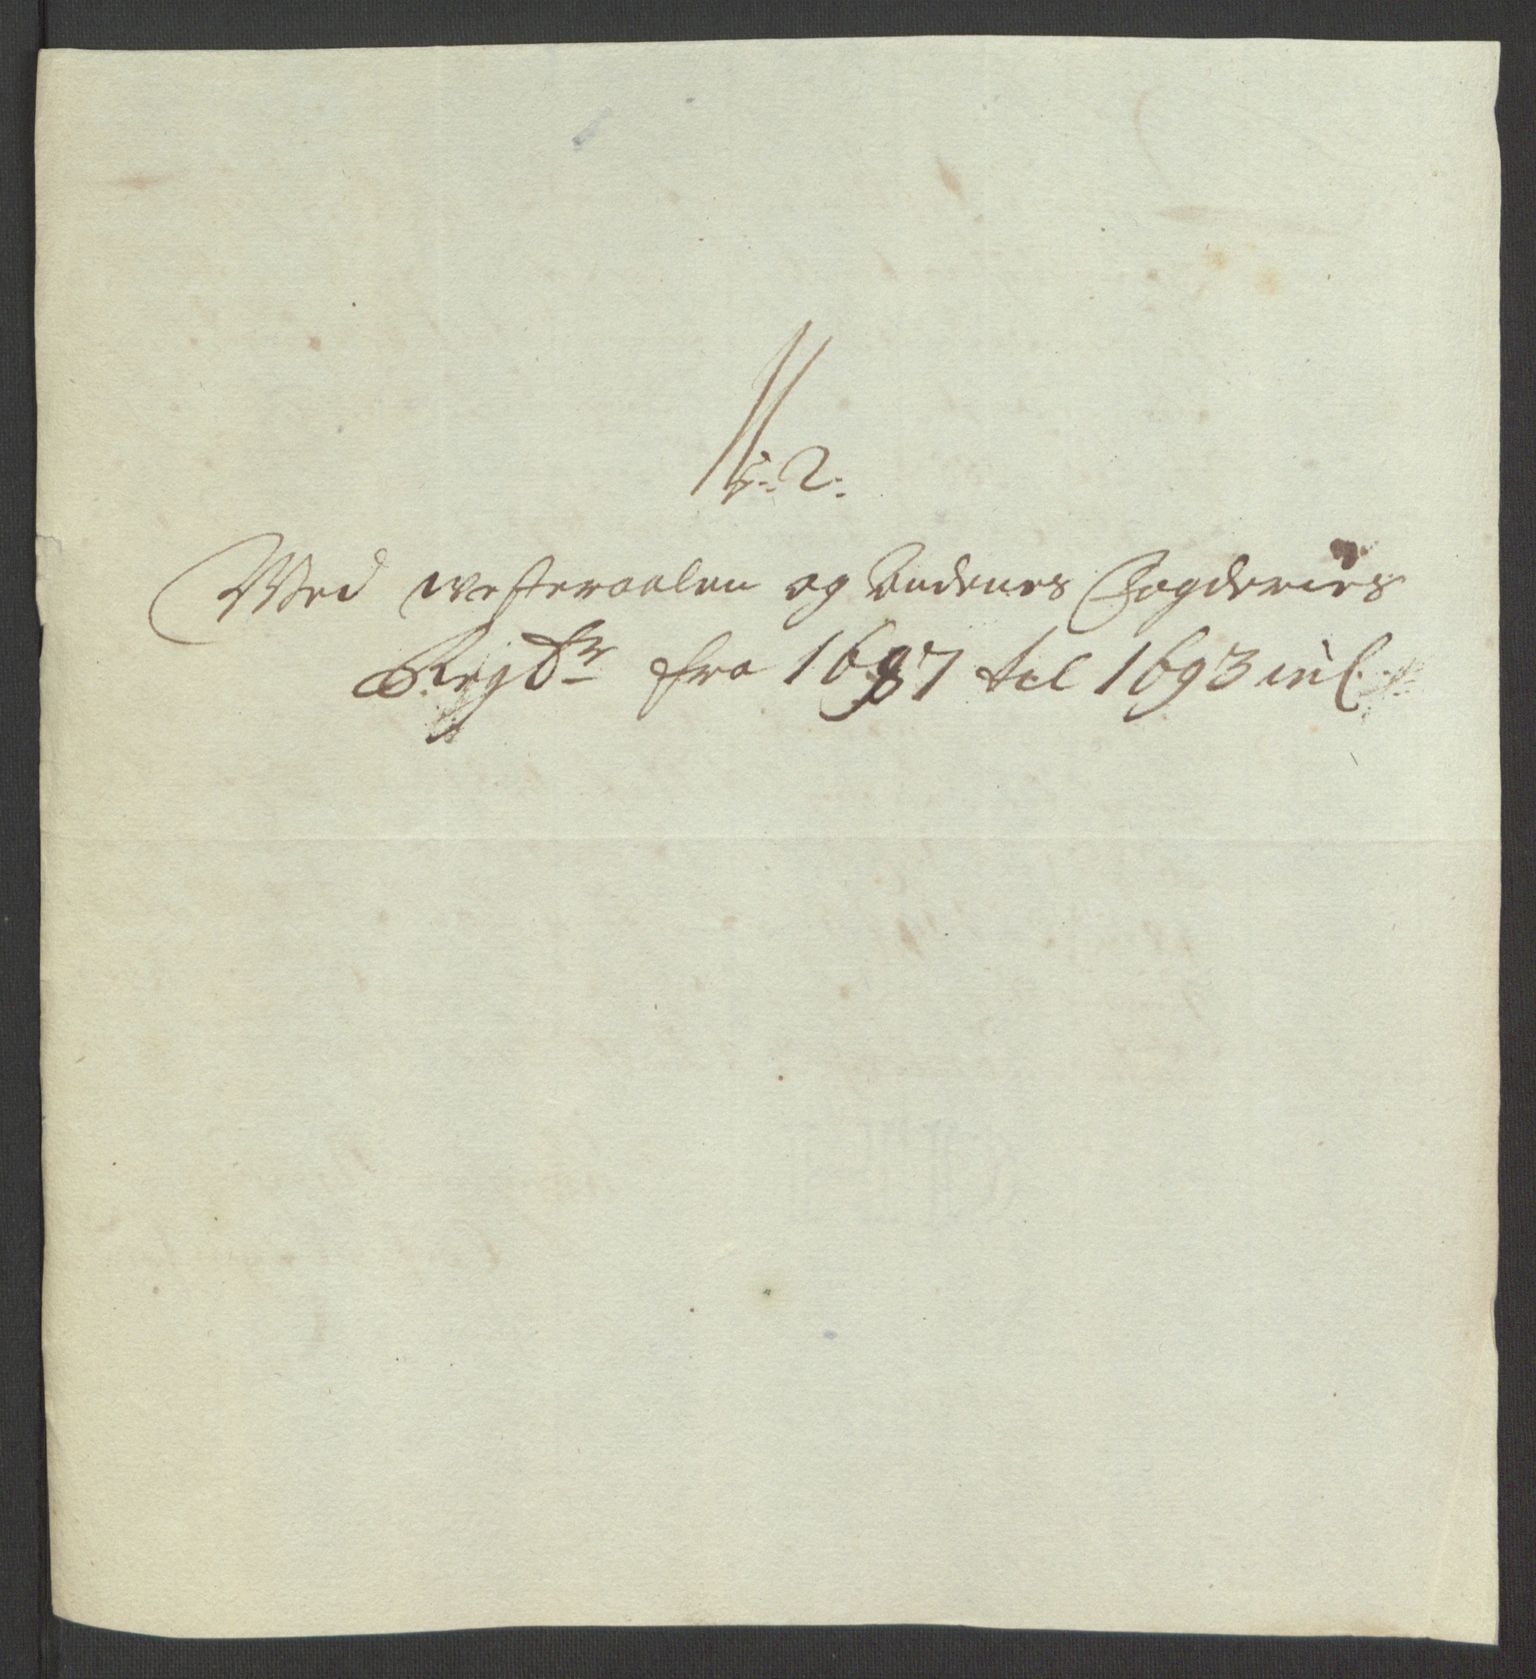 No: 2:
Ved Westeraalen og Andenes Fogderies
Regsr fra 1687 til 1693 incl.